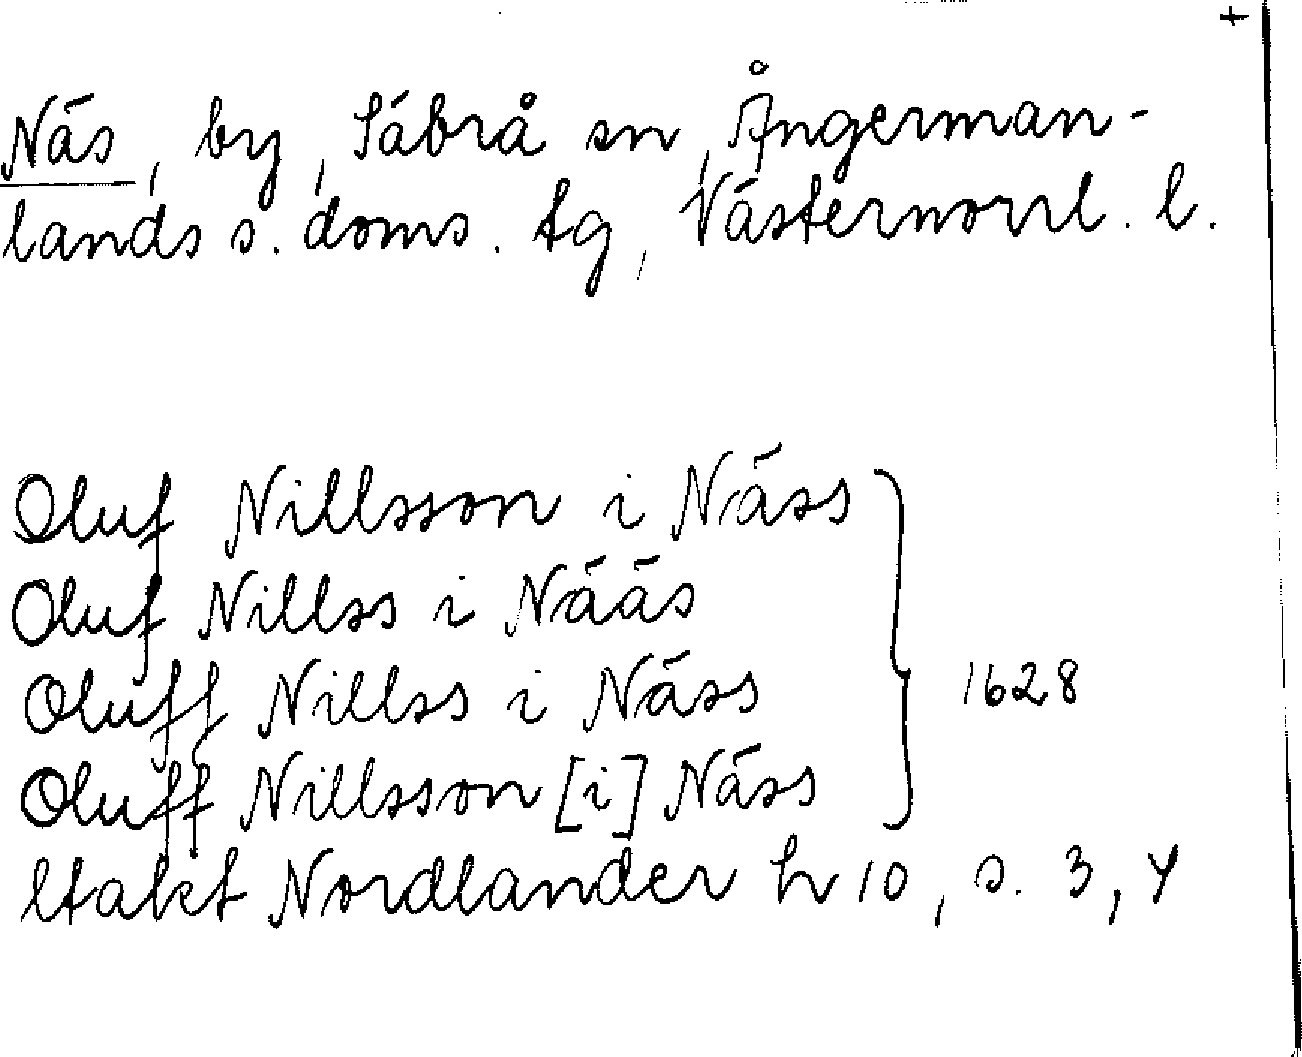 +
Näs, by, Säbrå sn, Ångerman-
lands s. doms. tg, Västernorrl. l.
Oluf Nillsson i Näss
Oluf Nillss i Nääs
Oluff Nillss i Näss
Oluff Nillsson [i] Näss
1628
Utakt Nordlander h 10, s. 3, 4